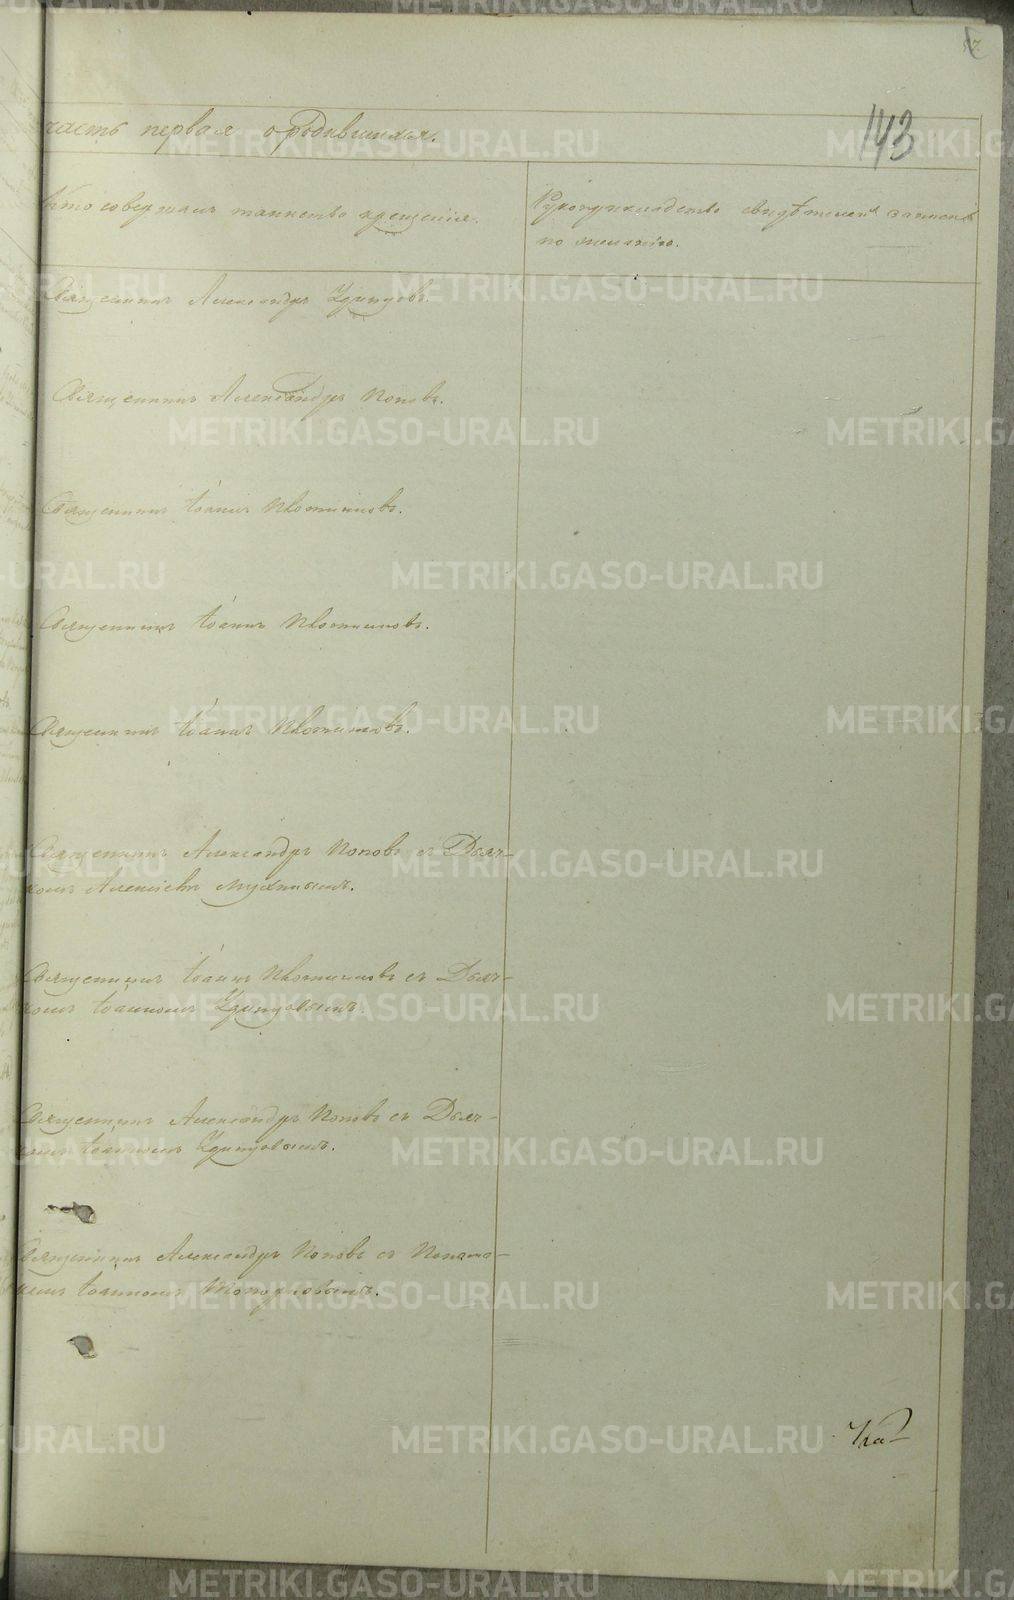 143
часть первая о родившихся.
Кто совершалъ таинство крещенія.
Рукоприкладство свидѣтелей записи
по желанію.
Священникъ Александръ Удинцовъ.
Священникъ Александръ Поповъ.
Священникъ Іоаннъ Плотниковъ.
Священникъ Іоаннъ Плотниковъ.
Священникъ Іоаннъ Плотниковъ.
Священникъ Александръ Поповъ съ Дьяч-
комъ Алексіемъ Мухинымъ.
Священникъ Іоаннъ Плотниковъ съ Дьяч-
комъ Іоанномъ Удинцовымъ.
Священникъ Александръ Поповъ съ Дьяч-
комъ Іоанномъ Удинцовымъ.
Священникъ Александръ Поповъ съ Понома-
ремъ Іоанномъ Топорковымъ.
METRIKI.GASO-URAL.RU